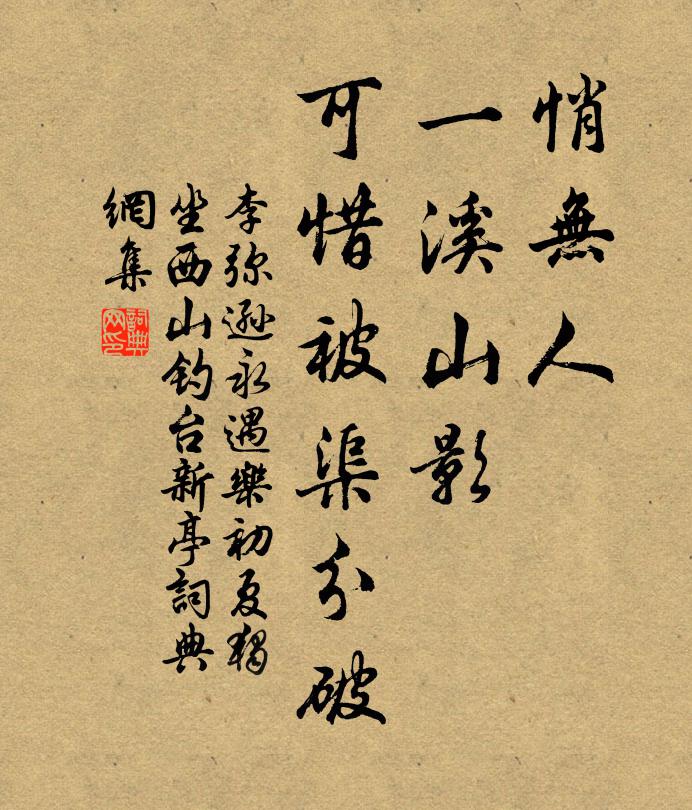 悄無人
一溪山影
可惜被渠分破
李弥遜永遇樂初夏獨
坐西山釣台新亭詞典
網集
詞典
网印